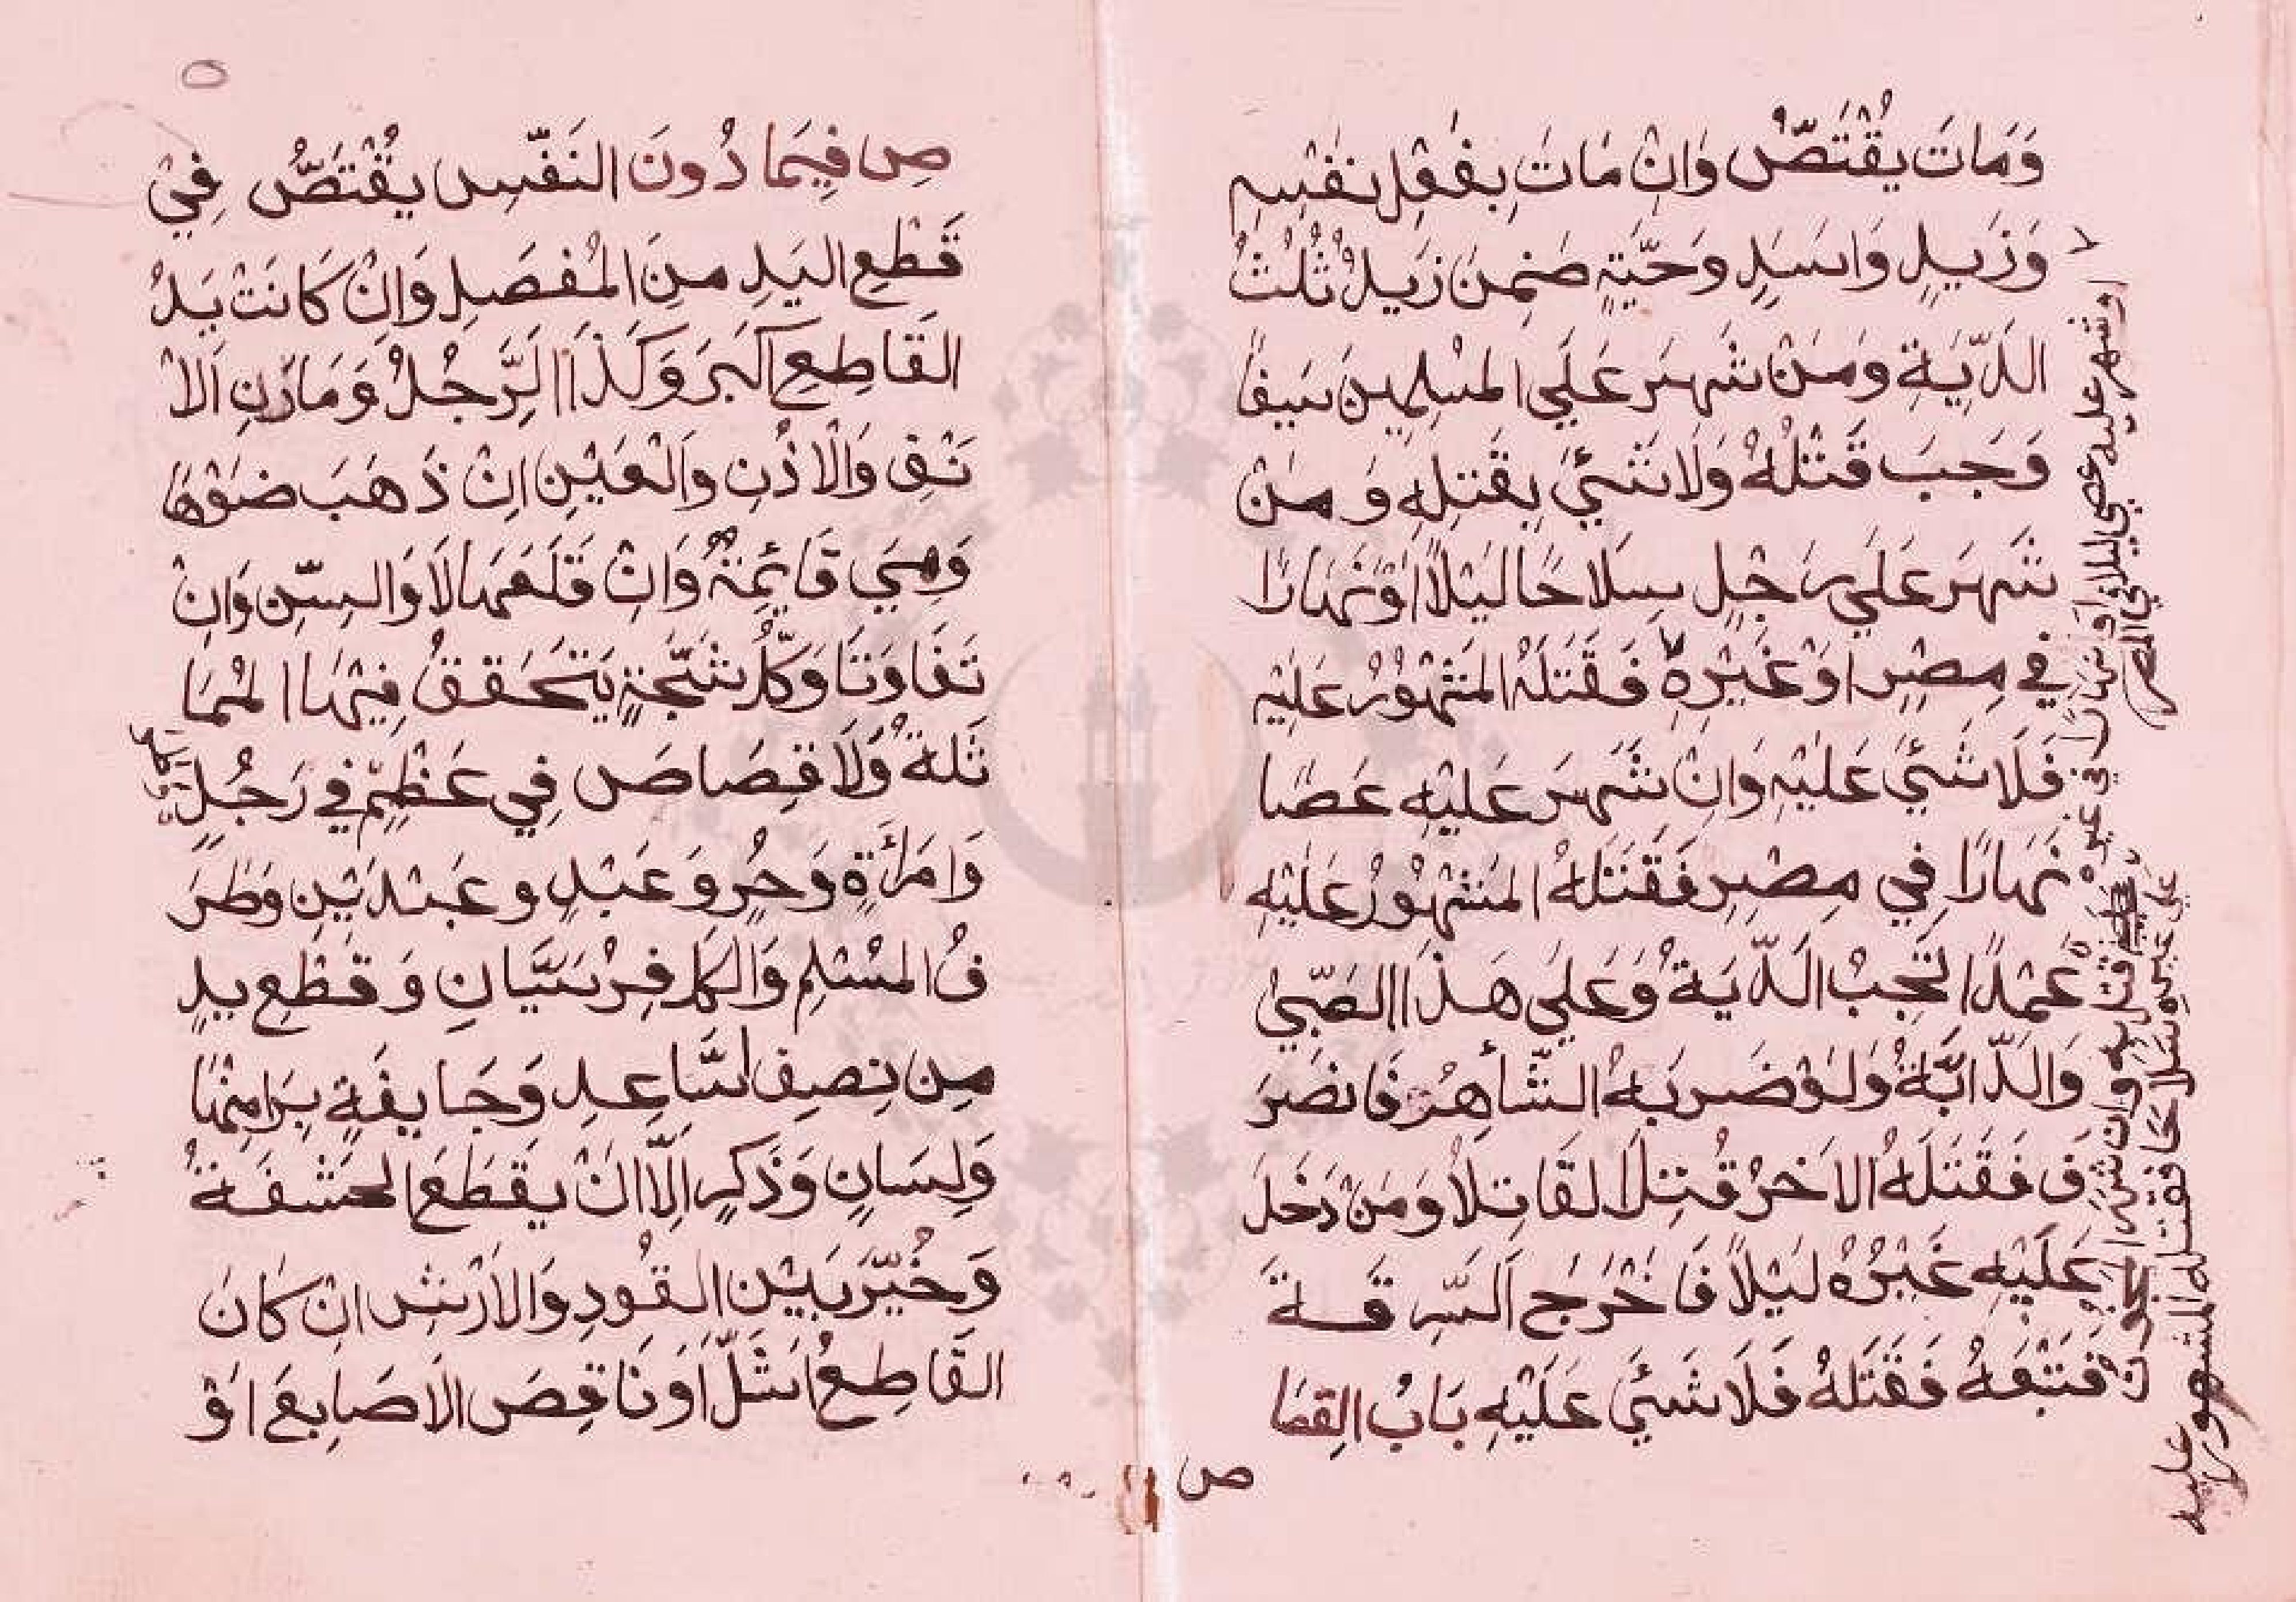 وَمَاتَ يُقْتَصُّ وَاِنْ مَاتَ بِفِعْلِ نَفْسِهِ
وَزَيْدٍ وَاَسَدٍ وَحَيَّةٍ ضَمِنَ زَيْدٌ ثُلُثُ
الدِّيَةِ وَمَنْ شَهَرَ عَلَي المُسْلِمِينَ سَيفًا
وَجَبَ قَتْلُهُ وَلَا شَئْيَ بِقَتلِهِ وَمَنْ
شَهَرَ عَلَي رَجُلٍ سِلَاحًا لَيْلًا اَوْ نَهَارًا
فِي مِصْرٍ اَوْ غَيْرِهِ فَقَتَلَهُ المَشْهُوْرُ عَلَيْهِ
فَلَا شَئْيَ عَلَيْهِ وَاِنْ شَهَرَ عَلَيْهِ عَصًا
نَهَارًا فِي مِصْرٍ فَقَتَلَهُ المَشْهُوْرُ عَلَيْهِ
عَمْدًا تَجِبُ الدِّيَةُ وَعَلي هَذَا الصَّبِيْ
وَالدَّابَّةُ وَلَوْ ضَرَبَهُ الشَّاهِرُ فَانصَرَ
فَ فَقَتَلَهُ الاَخَرُ قُتِلَ القَاتِلُ وَمَنْ دَخَلَ
عَلَيْهِ غَيْرُهُ لَيْلًا فَاَخْرَجَ السَّرِقَةَ
فَتَبِعَهُ فَقَتَلَهُ فَلَا شَئْيَ عَلَيْهِ بَابُ القِصَا
ص
او شهر عليه عصي ليلا في المصر
او نهارا في غيره
فقتل به وان شهر المجنون
علي غيره سلاحا فقتله المشهور عليه
٥
صِ فِيمَا دُونَ النَفْسِ يُقْتَصُّ فِيْ
قَطْعِ اليَدِ مِنَ المَفْصَلِ وَاِنْ كَانَتْ يَدُ
القَاطِعِ اَكْبَرَ وَكَذَا الرِّجُلُ وَمَارِنِ الاَ
نْفِ وَالْاُذُنِ وَالْعَيْنِ اِنْ ذَهَبَ ضَوْؤُهَا
وَهِيَ قَائِمَةٌ وَاِنْ قَلَعَهَا لَا وَالسِّنِ وَاِنْ
تَفَاوَتَا وَكُلُّ شَجَّةٍ يَتَحَقَقُ فِيْهَا المُمَا
ثَلَةُ وَلَا قِصَاصَ فِي عَظْمٍ فِي رَجُلٍ
وَامْرَأَةٍ وَحُرٍ وَعَبْدٍ وعَبْدَيْنِ وَطَرَ
فُ المُسْلِمِ وَالكَافِرِ سَيَّانِ وَقَطْعِ يدٍ
مِن نِصِفِ السَّاعِدِ وَجَايفَةٍ بَرَا مِنْهَا
وَلِسَانٍ وَذَكَرٍ اِلَّا اَنْ يَقْطَعَ الحَشْفَةُ
وَخُيِّرَ بَيْنَ القُودِ وَالاَرْشِ اِنْ كَانَ
القَاطِعُ اَشَلَّ اَوْ نَاقِصَ الاَصَابِعَ اَوْ